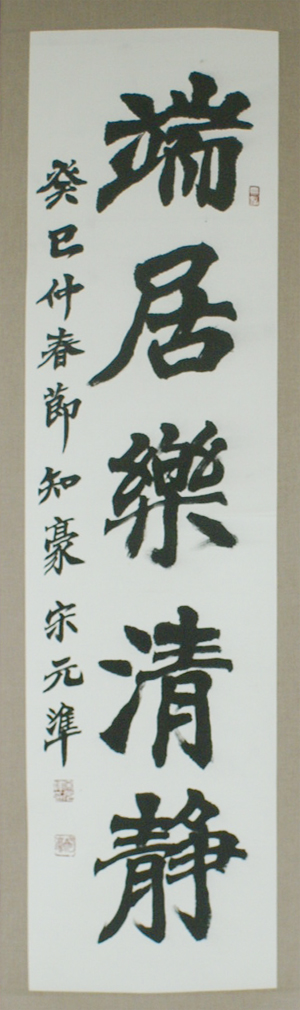 端居樂清静
癸巳仲春節知豪宋元準